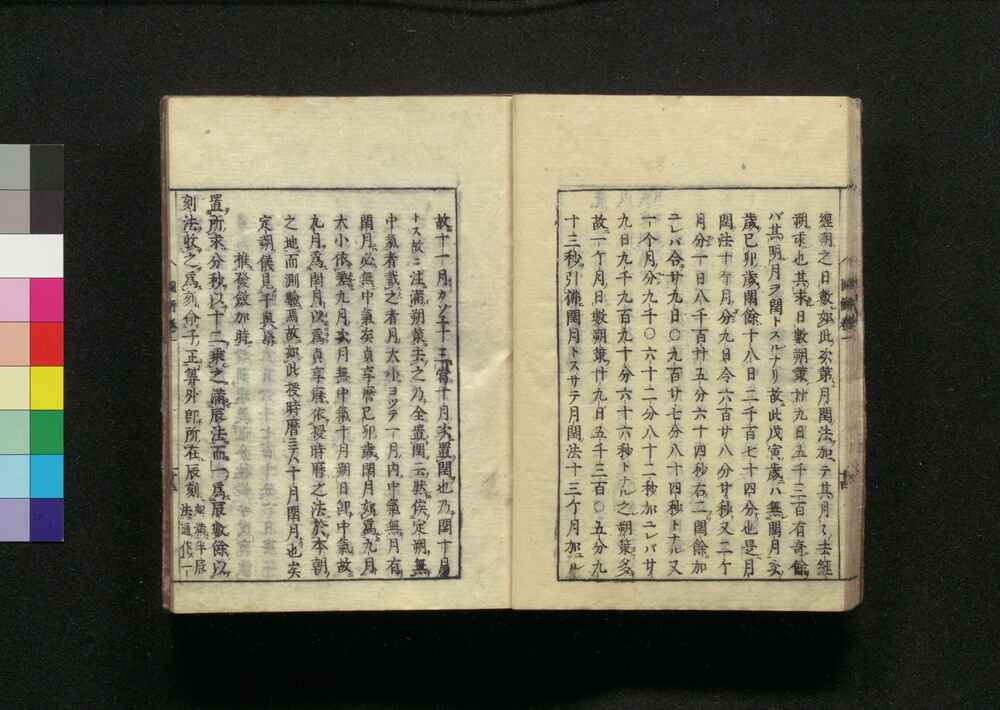 經朔之日數如此次第月閏法加テ其月〻去經
朔求也其求日數朔策廿九日五千三百有奇餘
バ其明月ヲ閏トスルナリ故此戊寅歲ハ無閏月矣
歲己卯歲閏餘十八日二千百七十四分也是月
閏法十ケ月分九日令六百廿八分廿秒又二ケ
月分一日八千百廿五分六十四秒右二閏餘加
ニレバ合廿九日〇九百廿七分八十四秒トナル又
一个月分九千〇六十二分八十二秒加ニレバ廿
九日九千九百九十分六十六秒トナル之朔策多
故一ケ月日數朔策廿九日五千三百〇五分九
十三秒引滿閏月トスサテ月閏法十三ケ月加ニル
故十一月カゾエ十三當十月次置閏也乃閏十月
トス故ニ注滿朔策去之乃全置閏云然俟定朔無
中氣者裁之者月大小ヨツテ一月内中氣無月有
閏月必無中氣矣貞享曆已卯歲閏月如爲九月
大小依整九月次月無中氣十月朔日卽中氣故
九月爲閏月以爲貞享曆依授時曆之法於本朝
之地而測驗爲故如此授時曆三六十月閏月也矣
定朔儀見于奥篇
推發斂加時
置所求分秒以十二乘之滿辰法而一爲辰數餘以
刻法收之爲刻命子正算外卽所在辰刻
如滿半辰
法通作一